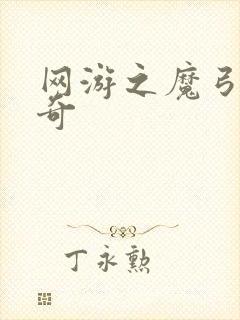 网游之魔弓
奇
丁永勲